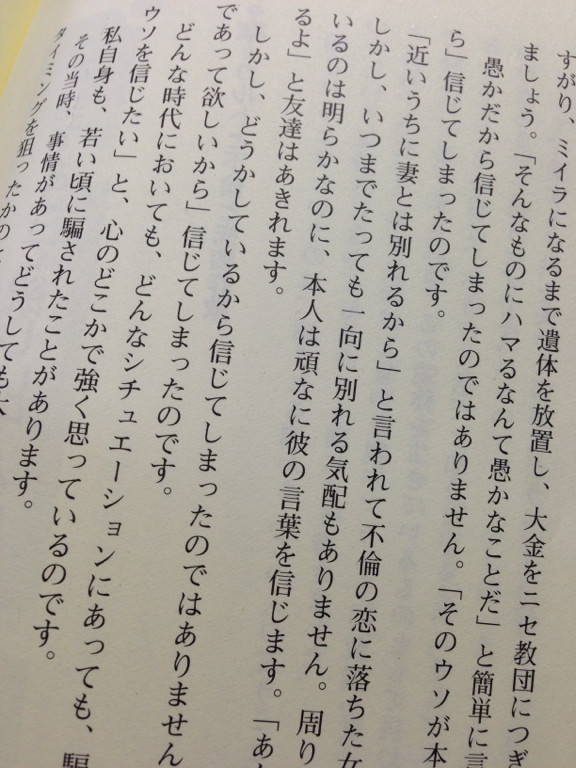 すがり、ミイラになるまで遺体を放置し、大金をニセ教団につぎ
ましょう。「そんなものにハマるなんて愚かなことだ」と簡単に言
愚かだから信じてしまったのではありません。「そのウソが本
ら」信じてしまったのです。
「近いうちに妻とは別れるから」と言われて不倫の恋に落ちた女
しかし、いつまでたっても一向に別れる気配もありません。周り
いるのは明らかなのに、本人は頑なに彼の言葉を信じます。「あん
るよ」と友達はあきれます。
しかし、どうかしているから信じてしまったのではありません
であって欲しいから」信じてしまったのです。
どんな時代においても、どんなシチュエーションにあっても、騙
ウソを信じたい」と、心のどこかで強く思っているのです。
私自身も、若い頃に騙されたことがあります。
その当時、事情があってどうしても大
タイミングを狙ったかの